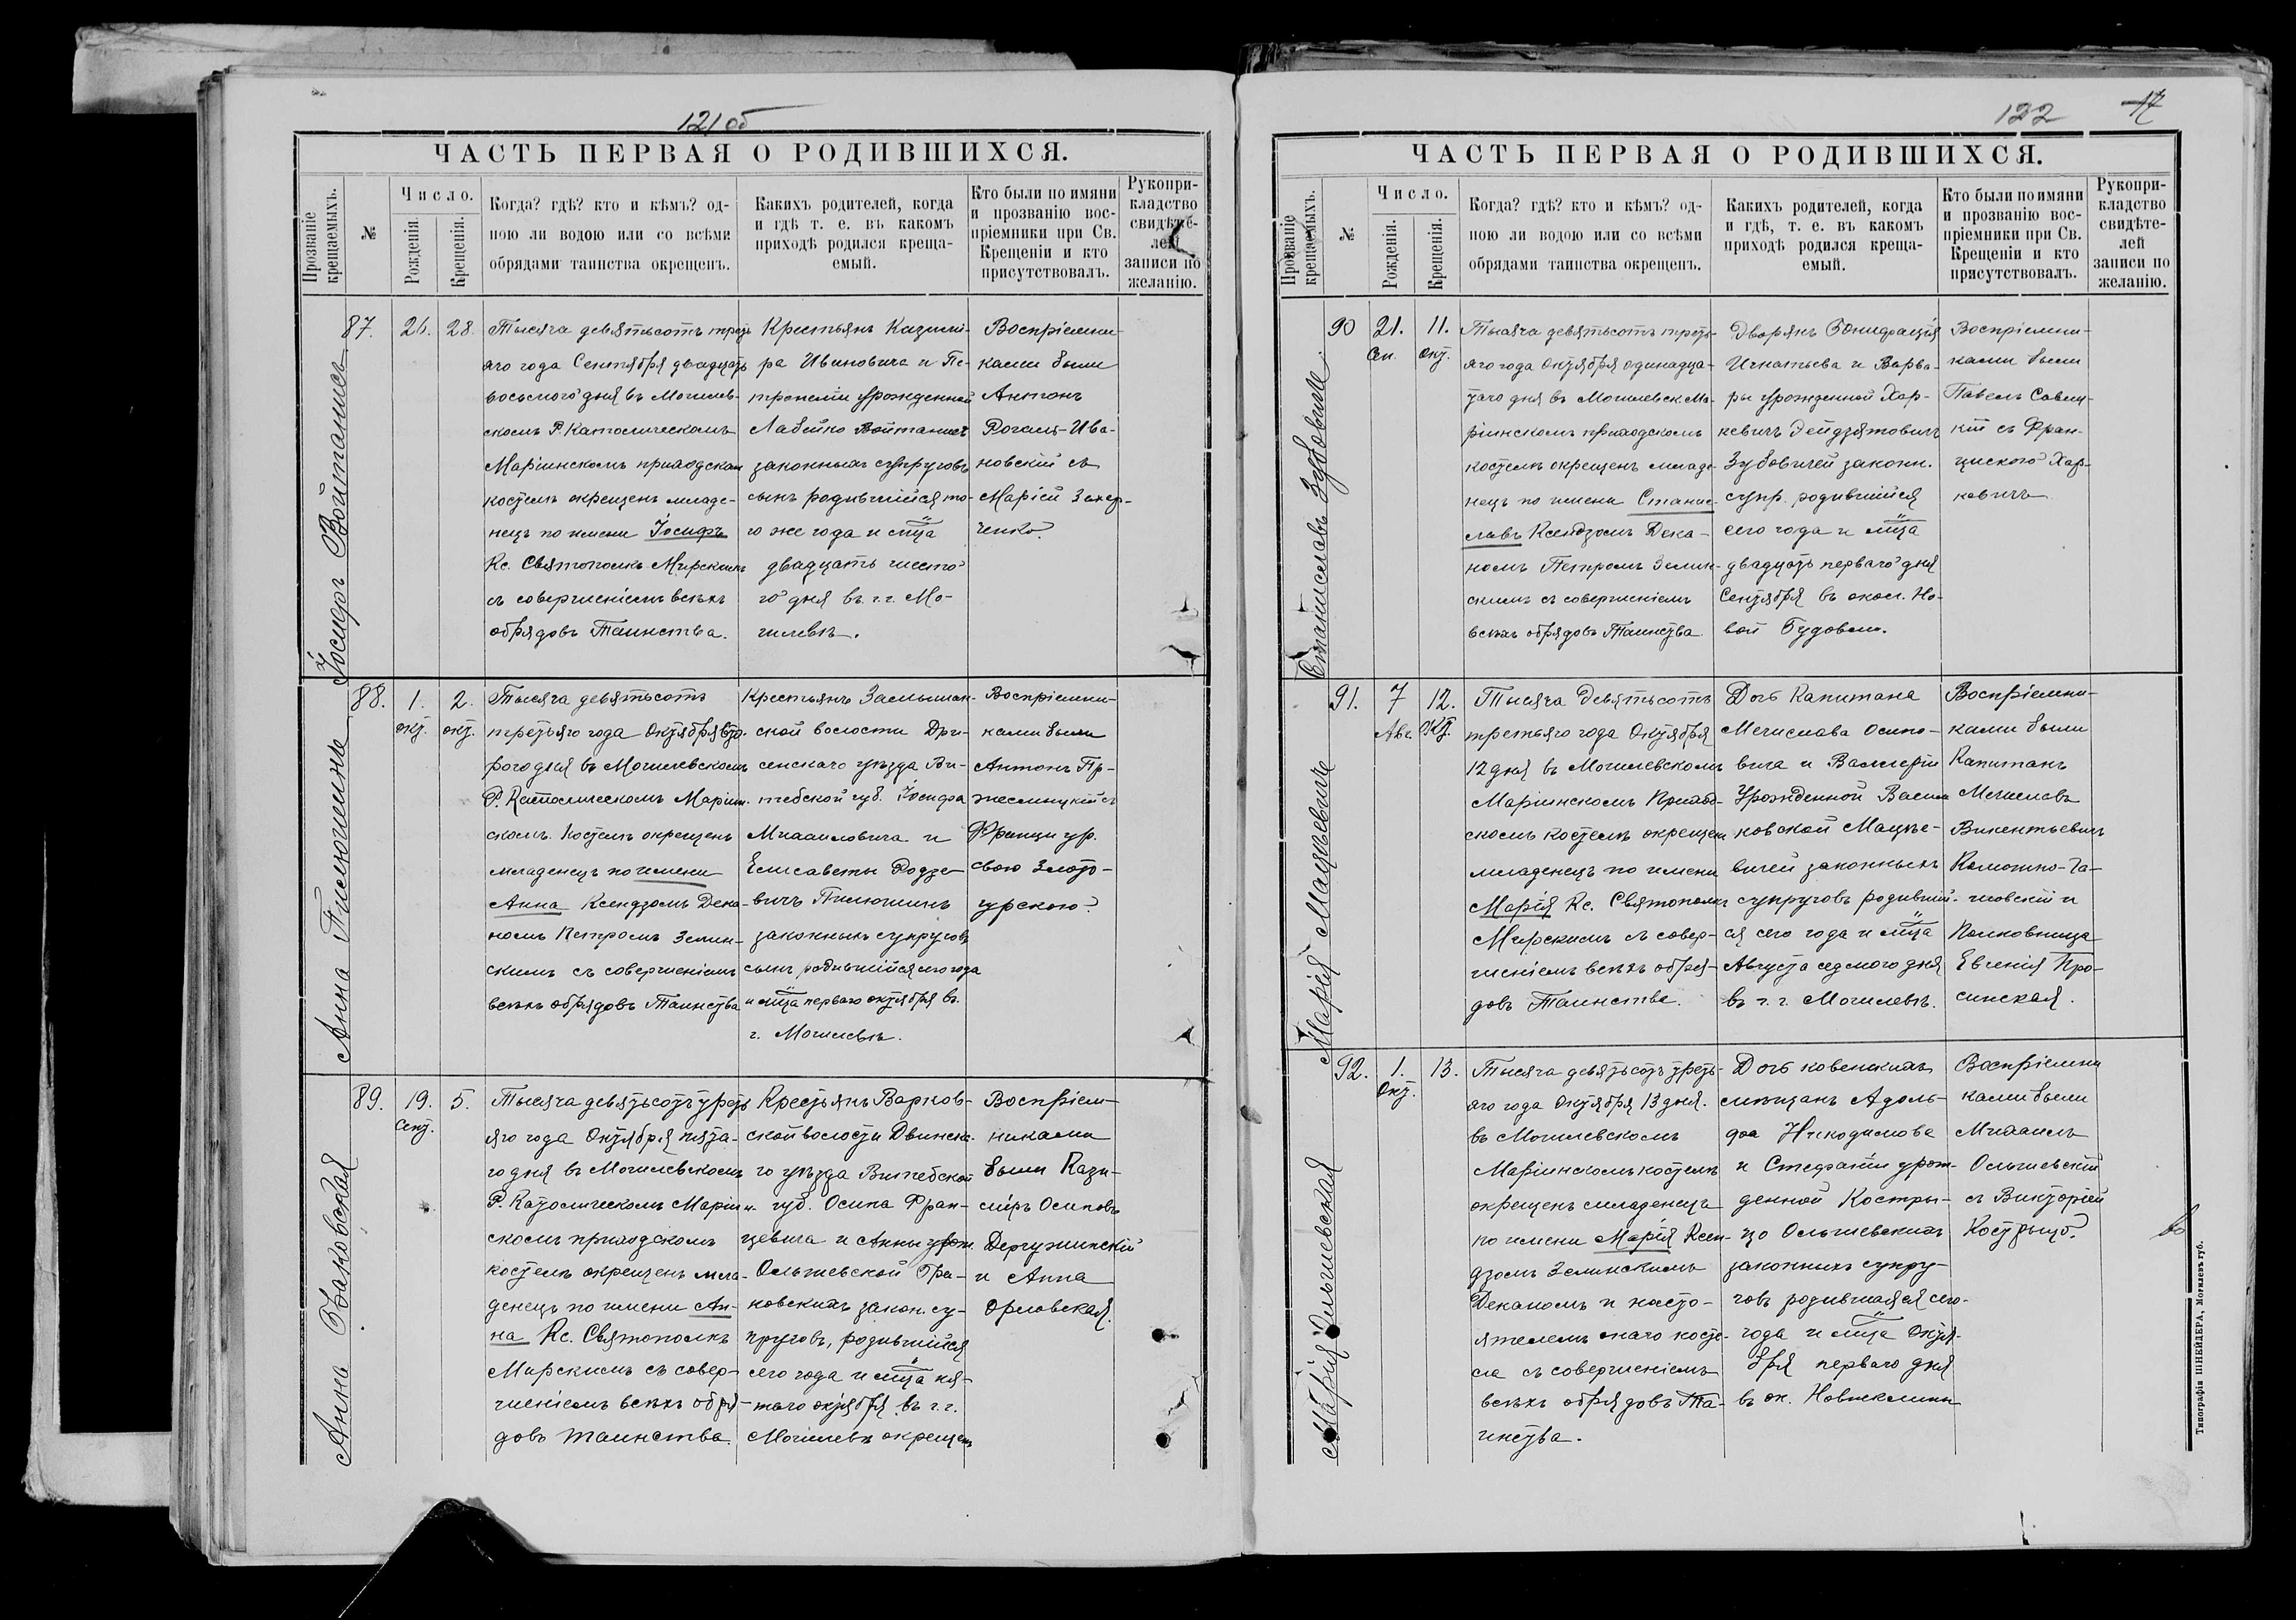 121 об
ЧАСТЬ ПЕРВАЯ О РОДИВШИХСЯ.
Прозваніе крещаемыхъ.
№
Число.
Рожденія.
Крещенія.
Когда? гдѣ? кто и кѣмъ? од-
ною ли водою или со всѣми
обрядами таинства окрещенъ.
Какихъ родителей, когда
и гдѣ т. е. въ какомъ
приходѣ родился креща-
емый.
Кто были по имяни
и прозванію вос-
пріемники при Св.
Крещеніи и кто
присутствовалъ.
Рукопри-
кладство
свидѣте-
лей
записи по
желанію.
Іосифъ Войтанисъ
87.
26.
28.
Тысяча девятьсотъ треть
яго года Сентября двадцать
восьмого дня въ Могилев-
скомъ Р. Католическомъ
Маріинскомъ приходском
костелѣ окрещенъ младе-
нецъ по имени Іосифъ
Кс. Святополкъ Мирскимъ
съ совершеніемъ всѣхъ
обрядовъ Таинства.
Крестьянъ Казими-
ра Ивановича и Пе-
тронеліи урожденной
Лабейко Войтанисъ
законныхъ супруговъ
сынъ родившійся то-
го же года и мца
двадцать шесто-
го дня въ г. г. Мо-
гилевѣ.
Воспріемни-
ками были
Антонъ
Рогаль-Ива-
новскій съ
Маріей Захар-
ченко.
Анна Пилюшина
88.
1.
окт.
2.
окт.
Тысяча девятьсотъ
третьяго года Октября вто-
рого дня въ Могилевскомъ
Р. Католическомъ Маріин-
скомъ Костелѣ окрещенъ
младенецъ по имени
Анна Ксендзомъ Дека-
номъ Петромъ Зелин-
скимъ съ совершеніемъ
всѣхъ обрядовъ Таинства
Крестьянъ Замшан-
ской волости Дри-
сенскаго уѣзда Ви-
тебской губ. Іосифа
Михаиловича и
Елисаветы Родзе
вичъ Пилюшинъ
законныхъ супруговъ
сынъ родившійся сего года
и мца перваго октября въ
г. Могилевѣ.
Воспріемни-
ками были
Антонъ Пр-
жеслицкій съ
Франци ур.
свою Злото-
гурскою.
Анна Ваковская
89.
19.
Сент.
5.
Тысяча девятьсотъ треть
яго года Октября пята-
го дня въ Могилевскомъ
Р. Католическомъ Маріин-
скомъ приходскомъ
костелѣ окрещенъ мла-
денецъ по имени Ан-
на Кс. Святополкъ
Мирскимъ съ совер-
шеніемъ всѣхъ обря-
довъ таинства.
Крестьянъ Варков-
ской волости Двинска-
го уѣзда Витебской
губ. Осипа Фран-
цевича и Анны урож.
Ольшевской Тра-
ковскихъ закон. су-
пруговъ, родившійся
сего года и мца пя-
таго октября въ г. г.
Могилевѣ окрещенъ
Воспріем-
никами
были Кази-
міръ Осиповъ
Дергужинскій
и Анна
Орловская.
122
17
ЧАСТЬ ПЕРВАЯ О РОДИВШИХСЯ.
Прозваніе крещаемыхъ.
№
Число.
Рожденія.
Крещенія.
Когда? гдѣ? кто и кѣмъ? од-
ною ли водою или со всѣми
обрядами таинства окрещенъ.
Какихъ родителей, когда
и гдѣ, т. е. въ какомъ
приходѣ родился креща-
емый.
Кто были по имяни
и прозванію вос-
пріемники при Св.
Крещеніи и кто
присутствовалъ.
Рукопри-
кладство
свидѣте-
лей
записи по
желанію.
Станиславъ Зубовичъ
90
21.
Сен.
11.
Окт.
Тысяча девятьсотъ треть-
яго года Октября одинадца-
таго дня въ Могилевск. Ма-
ріинскомъ приходскомъ
костелѣ окрещенъ младе-
нецъ по имени Станис-
лавъ Ксендзомъ Дека-
номъ Петромъ Зелин-
скимъ съ совершеніемъ
всѣхъ обрядовъ Таинства
Дворянъ Бонифація
Игнатьева и Варва-
ры урожденной Хар-
кевичъ Дейдзятовичъ
Зубовичей законн.
супр. родившійся
сего года и мца
двадцать перваго дня
Сентября въ окол. Но-
вой Будовли.
Воспріемни-
ками были
Павелъ Савиц-
кій съ Фран-
циской Хар-
кевичъ
Марія Мацкевичъ
91.
7
Авг.
12.
Окт.
Тысяча Девятьсотъ
третьяго года Октября
12 дня въ Могилевскомъ
Маріинскомъ Приход-
скомъ костелѣ окрещен
младенецъ по имени
Марія Кс. Святополкъ
Мирскимъ съ совер-
шеніемъ всѣхъ обря-
довъ Таинства.
Дочь Капитана
Мечислава Осипо-
вича и Валеріи
Урожденной Васил
ковской Мацке-
вичей законныхъ
супруговъ родивший-
ся сего года и мца
Августа седмого дня
въ г. г. Могилевѣ.
Воспріемни-
ками были
Капитанъ
Мечиславъ
Викентьевичъ
Комотко-Га-
новскій и
Полковница
Евгенія Про-
синская.
Марія Ольшевская
92.
1.
Окт.
13.
Тысяча девятьсотъ треть-
яго года Октября 13 дня.
въ Могилевскомъ
Маріинскомъ костелѣ
окрещенъ младенецъ
по имени Марія Ксен-
дзомъ Зелинскимъ
Деканомъ и насто-
ятелемъ онаго косте-
ла съ совершеніемъ
всѣхъ обрядовъ Та-
инства.
Дочь ковенскихъ
мѣщанъ Адоль-
фа Никодимова
и Стефаніи урож-
денной Костры-
цо Ольшевскихъ
законныхъ супру-
говъ родившаяся сего-
года и мца Октя-
бря перваго дня
въ ок. Новиклины
Воспріемни
ками были
Михаилъ
Ольшевскій
съ Викторіей
Кострыцо.
Типографія ШНЕЙДЕРА, Могилевъ губ.